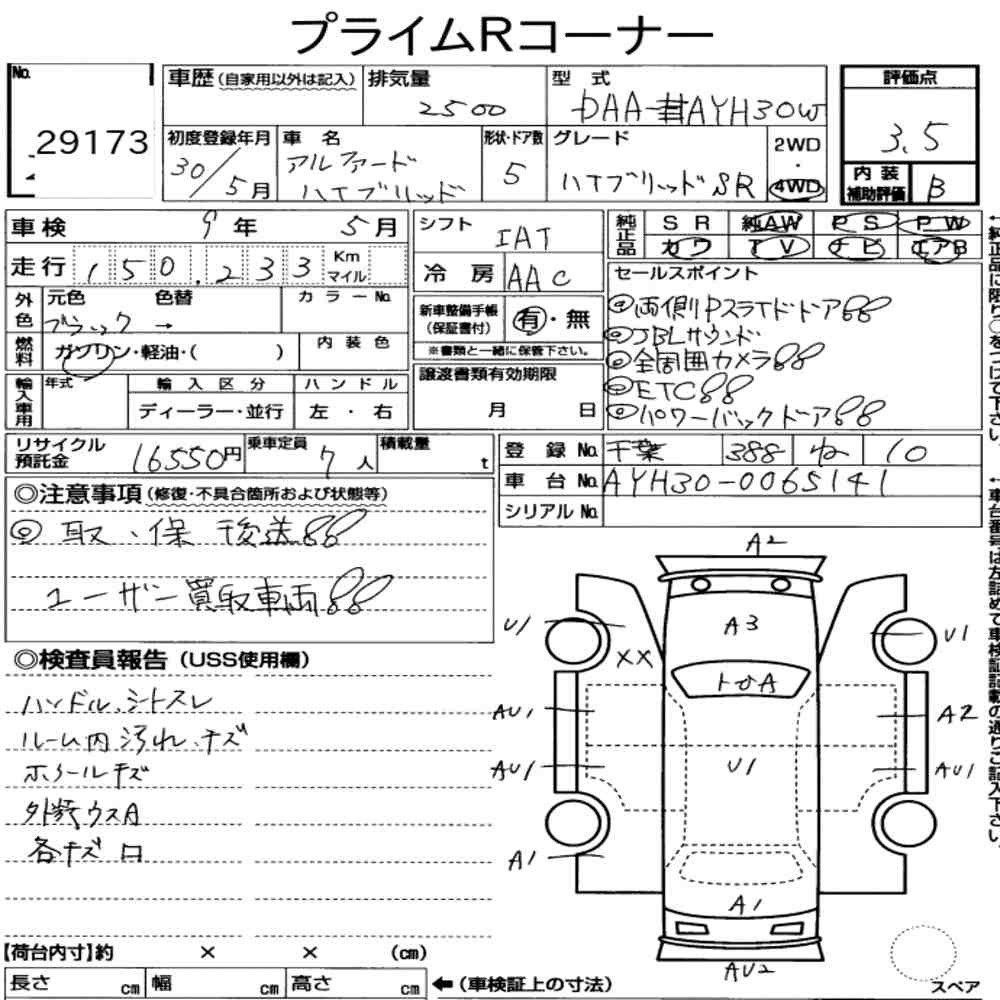 プライムRコーナー
No. 29173
車歴(自家用以外は記入)
排気量 2500
型式 DAA-AYH30W
評価点 3.5
内装補助評価 B
初度登録年月 30/5月
車名 アルファード ハイブリッド
形状・ドア数 5
グレード ハイブリッドSR
2WD・4WD
車検 9年 5月
シフト IAT
純正品 SR 純AW PS PW
カワ TV ナビ エアB
走行 150,233 Km マイル
冷房 AAC
セールスポイント
◎両側パワスライドドア
◎JBLサウンド
◎全周囲カメラ
◎ETC
◎パワーバックドア
外色 元色 色替 カラーNo.
ブラック →
新車整備手帳(保証書付) 有・無
※書類と一緒に保管下さい。
燃料 ガソリン・軽油・( )
内装色
輸入車用 年式 輸入区分 ハンドル
ディーラー・並行 左・右
譲渡書類有効期限
月 日
リサイクル預託金 16550円
乗車定員 7人
積載量 t
登録No. 千葉 388 ね 10
車台No. AYH30-0065141
シリアルNo.
◎注意事項(修復・不具合箇所および状態等)
◎取、保 後送
ユーザー買取車両
◎検査員報告(USS使用欄)
ハンドル、シートスレ
ルーム内汚れ、キズ
ホイールキズ
外装ウスA
各キズ ロ
A2
U1
A3
U1
XX
トびA
AU1
A2
AU1
U1
AU1
A1
A1
AU2
スペア
【荷台内寸】約 × × (cm)
長さ cm 幅 cm 高さ cm
←(車検証上の寸法)
←純正品に限り○をつけて下さい。
←車台番号は左詰めで車検証記載の通りご記入下さい。